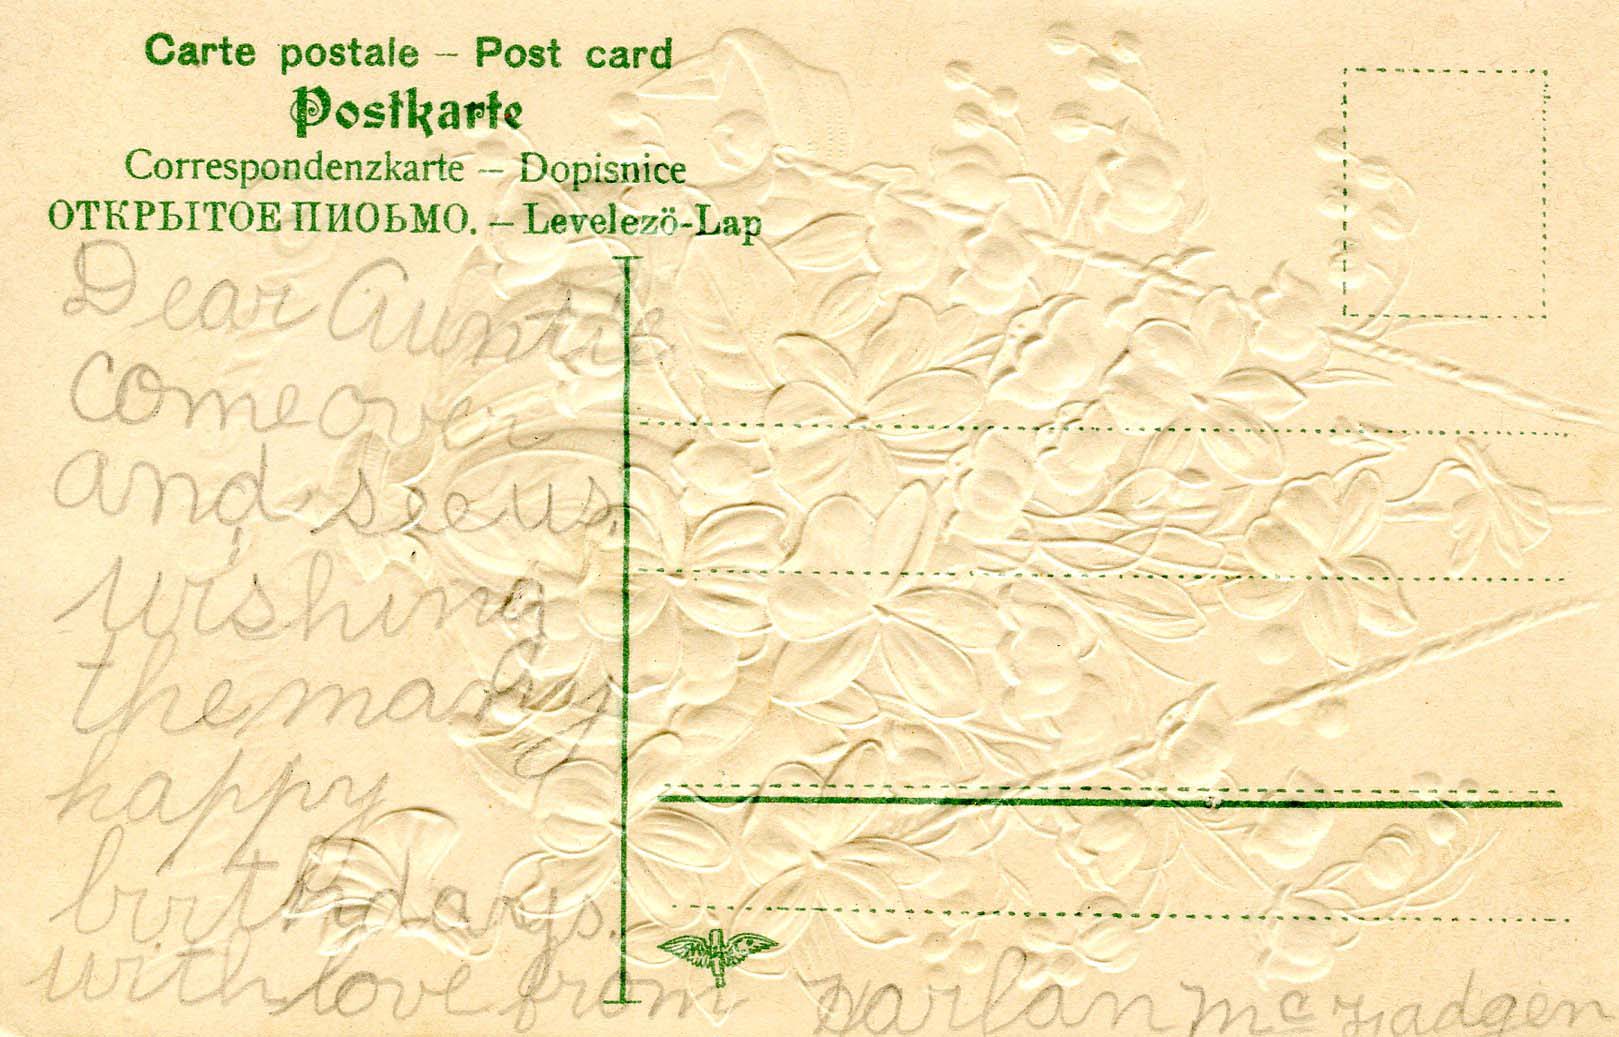 Carte postale – Post card
Postkarte
Correspondenzkarte – Dopisnice
ОТКРЫТОЕ ПИОЬМО. – Levelezö-Lap
Dear Auntie
come over
and see us.
wishing
the many
happy
birthdays.
with love from Harlan Mc